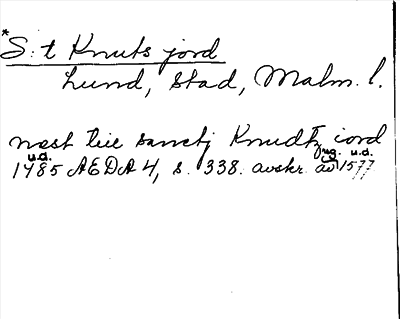 *S:t Knuts jord
Lund, Stad, Malm. l.
næst tiie sanctj Knudtz iord
u.d. jug. u.d.
1485 AEDA 4, s. 338. avskr. av 1577